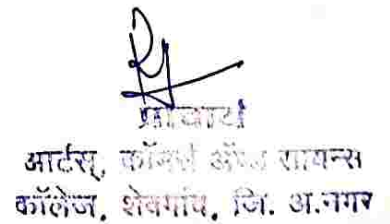 प्राचार्य
आर्टस्, कॉमर्स अॅण्ड सायन्स
कॉलेज, शेवगांव, जि. अ.नगर